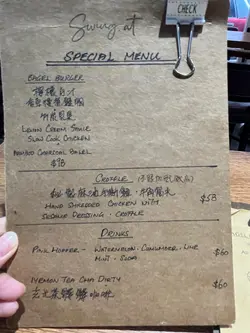 Swing at
CHECK
SPECIAL MENU
BAGEL BURGER
檸檬白汁
慢煮雞胸
竹炭貝果
LEMON CREAM SAUCE
SLOW COOK CHICKEN
BAMBOO CHARCOAL BAGEL
$78
CROFFLE
麻油手撕雞
HAND SHREDDED CHICKEN WITH
SESAME DRESSING, CROFFLE
$58
DRINKS
PINK HOPPER - WATERMELON, CUCUMBER, LIME
MINT, SODA
$60
GENMAI TEA CHA DIRTY
玄米茶髒髒咖啡
$60